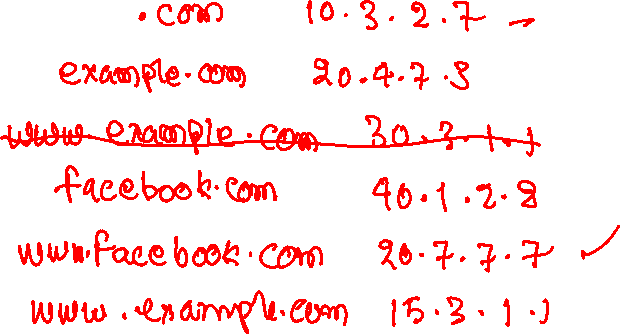 .com 10.3.2.7 →
example.com 20.4.7.3
www.example.com 30.3.1.1
facebook.com 40.1.2.8
www.facebook.com 20.7.7.7 ✓
www.example.com 15.3.1.1